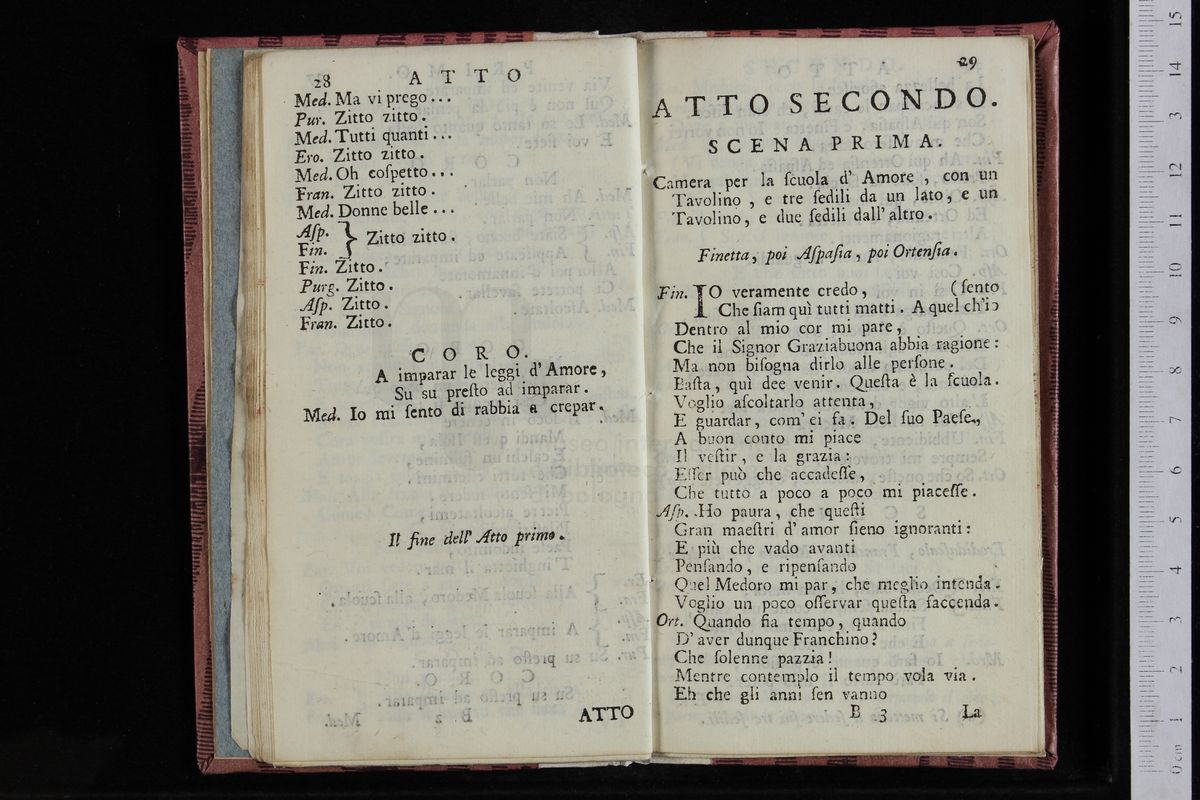 28 ATTO
Med. Ma vi prego...
Pur. Zitto zitto.
Med. Tutti quanti...
Ero. Zitto zitto.
Med. Oh coſpetto...
Fran. Zitto zitto.
Med. Donne belle...
Aſp. } Zitto zitto.
Fin.
Fin. Zitto.
Purg. Zitto.
Aſp. Zitto.
Fran. Zitto.
CORO.
A imparar le leggi d' Amore,
Su su preſto ad imparar.
Med. Io mi ſento di rabbia a crepar.
Il fine dell' Atto primo.
ATTO
29
ATTO SECONDO.
SCENA PRIMA.
Camera per la ſcuola d' Amore, con un
Tavolino, e tre ſedili da un lato, e un
Tavolino, e due ſedili dall' altro.
Finetta, poi Aſpaſia, poi Ortenſia.
Fin. IO veramente credo, (ſento
Che ſiam quì tutti matti. A quel ch'io
Dentro al mio cor mi pare,
Che il Signor Graziabuona abbia ragione:
Ma non biſogna dirlo alle perſone.
Baſta, quì dee venir. Queſta è la ſcuola.
Voglio aſcoltarlo attenta,
E guardar, com' ei fa. Del ſuo Paeſe,
A buon conto mi piace
Il veſtir, e la grazia:
Eſſer può che accadeſſe,
Che tutto a poco a poco mi piaceſſe.
Aſp. Ho paura, che queſti
Gran maeſtri d' amor ſieno ignoranti:
E più che vado avanti
Penſando, e ripenſando
Quel Medoro mi par, che meglio intenda.
Voglio un poco oſſervar queſta faccenda.
Ort. Quando fia tempo, quando
D' aver dunque Franchino?
Che ſolenne pazzia!
Mentre contemplo il tempo vola via.
Eh che gli anni ſen vanno
B 3 La